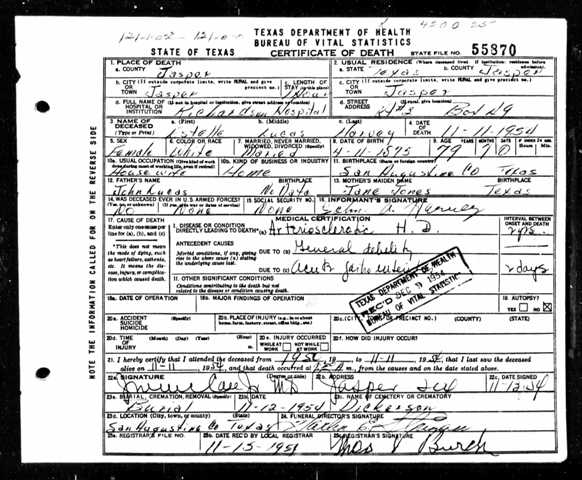 TEXAS DEPARTMENT OF HEALTH
BUREAU OF VITAL STATISTICS
STATE OF TEXAS CERTIFICATE OF DEATH STATE FILE NO. 55870
1. PLACE OF DEATH 2. USUAL RESIDENCE (Where deceased lived. If institution: residence before admission).
a. COUNTY Jasper a. STATE Texas b. COUNTY Jasper
b. CITY (If outside corporate limits, write RURAL and give precinct no.) OR TOWN Jasper c. LENGTH OF STAY c. CITY (If outside corporate limits, write RURAL and give precinct no.) OR TOWN Jasper
d. FULL NAME OF HOSPITAL OR INSTITUTION (If not in hospital or institution, give street address or location) Richardson Hospital d. STREET ADDRESS Box
3. NAME OF DECEASED (Type or Print) a. (First) Estelle b. (Middle) Lucas c. (Last) Harvey 4. DATE OF DEATH 11-11-1954
5. SEX Female 6. COLOR OR RACE White 7. MARRIED, NEVER MARRIED, WIDOWED, DIVORCED (Specify) Married 8. DATE OF BIRTH 4-1-1875 9. AGE YEARS 79 MONTHS 7 DAYS
10a. USUAL OCCUPATION Housewife 10b. KIND OF BUSINESS OR INDUSTRY Home 11. BIRTHPLACE (State or foreign country) San Augustine Co Texas
12. FATHER'S NAME John Lucas BIRTHPLACE No Data 13. MOTHER'S MAIDEN NAME Jane Jones BIRTHPLACE Texas
14. WAS DECEASED EVER IN U.S. ARMED FORCES? No None 15. SOCIAL SECURITY NO. None 16. INFORMANT'S SIGNATURE John A. Harvey
17. CAUSE OF DEATH MEDICAL CERTIFICATION INTERVAL BETWEEN ONSET AND DEATH
Enter only one cause per line for (a), (b), and (c) I. DISEASE OR CONDITION DIRECTLY LEADING TO DEATH* (a) Arteriosclerotic H. D.
*This does not mean the mode of dying, such as heart failure, asthenia, etc. It means the disease, injury, or complication which caused death.
ANTECEDENT CAUSES
Morbid conditions, if any, giving rise to the above cause (a) stating the underlying cause last.
DUE TO (b) General debility
DUE TO (c) Acute 2 days
II. OTHER SIGNIFICANT CONDITIONS
Conditions contributing to the death but not related to the disease or condition causing death.
TEXAS DEPARTMENT OF HEALTH
REC'D DEC 1954
BUREAU OF VITAL STATISTICS
18a. DATE OF OPERATION 18b. MAJOR FINDINGS OF OPERATION 19. AUTOPSY? YES NO
20a. ACCIDENT SUICIDE HOMICIDE (Specify) 20b. PLACE OF INJURY (e.g., in or about home, farm, factory, street, office bldg., etc.) 20c.
20d. TIME OF INJURY (Month) (Day) (Year) (Hour) 20e. INJURY OCCURRED WHILE AT WORK NOT WHILE AT WORK 20f. HOW DID INJURY OCCUR?
21. I hereby certify that I attended the deceased from 1954 to 11-11 1954, that I last saw the deceased
alive on 11-11 1954, and that death occurred at m., from the causes and on the date stated above.
22a. SIGNATURE (Degree or title) 22b. ADDRESS Jasper Tex 22c. DATE SIGNED 11/12/54
23a. BURIAL, CREMATION, REMOVAL (Specify) Burial 23b. DATE 11-12-1954 23c. NAME OF CEMETERY OR CREMATORY Dickerson
23d. LOCATION (City, town, or county) (State) San Augustine Co Texas 24. FUNERAL DIRECTOR'S SIGNATURE
25a. REGISTRAR'S FILE NO. 25b. DATE REC'D BY LOCAL REGISTRAR 11-15-1954 25c. REGISTRAR'S SIGNATURE Burch
NOTE THE INFORMATION CALLED FOR ON THE REVERSE SIDE